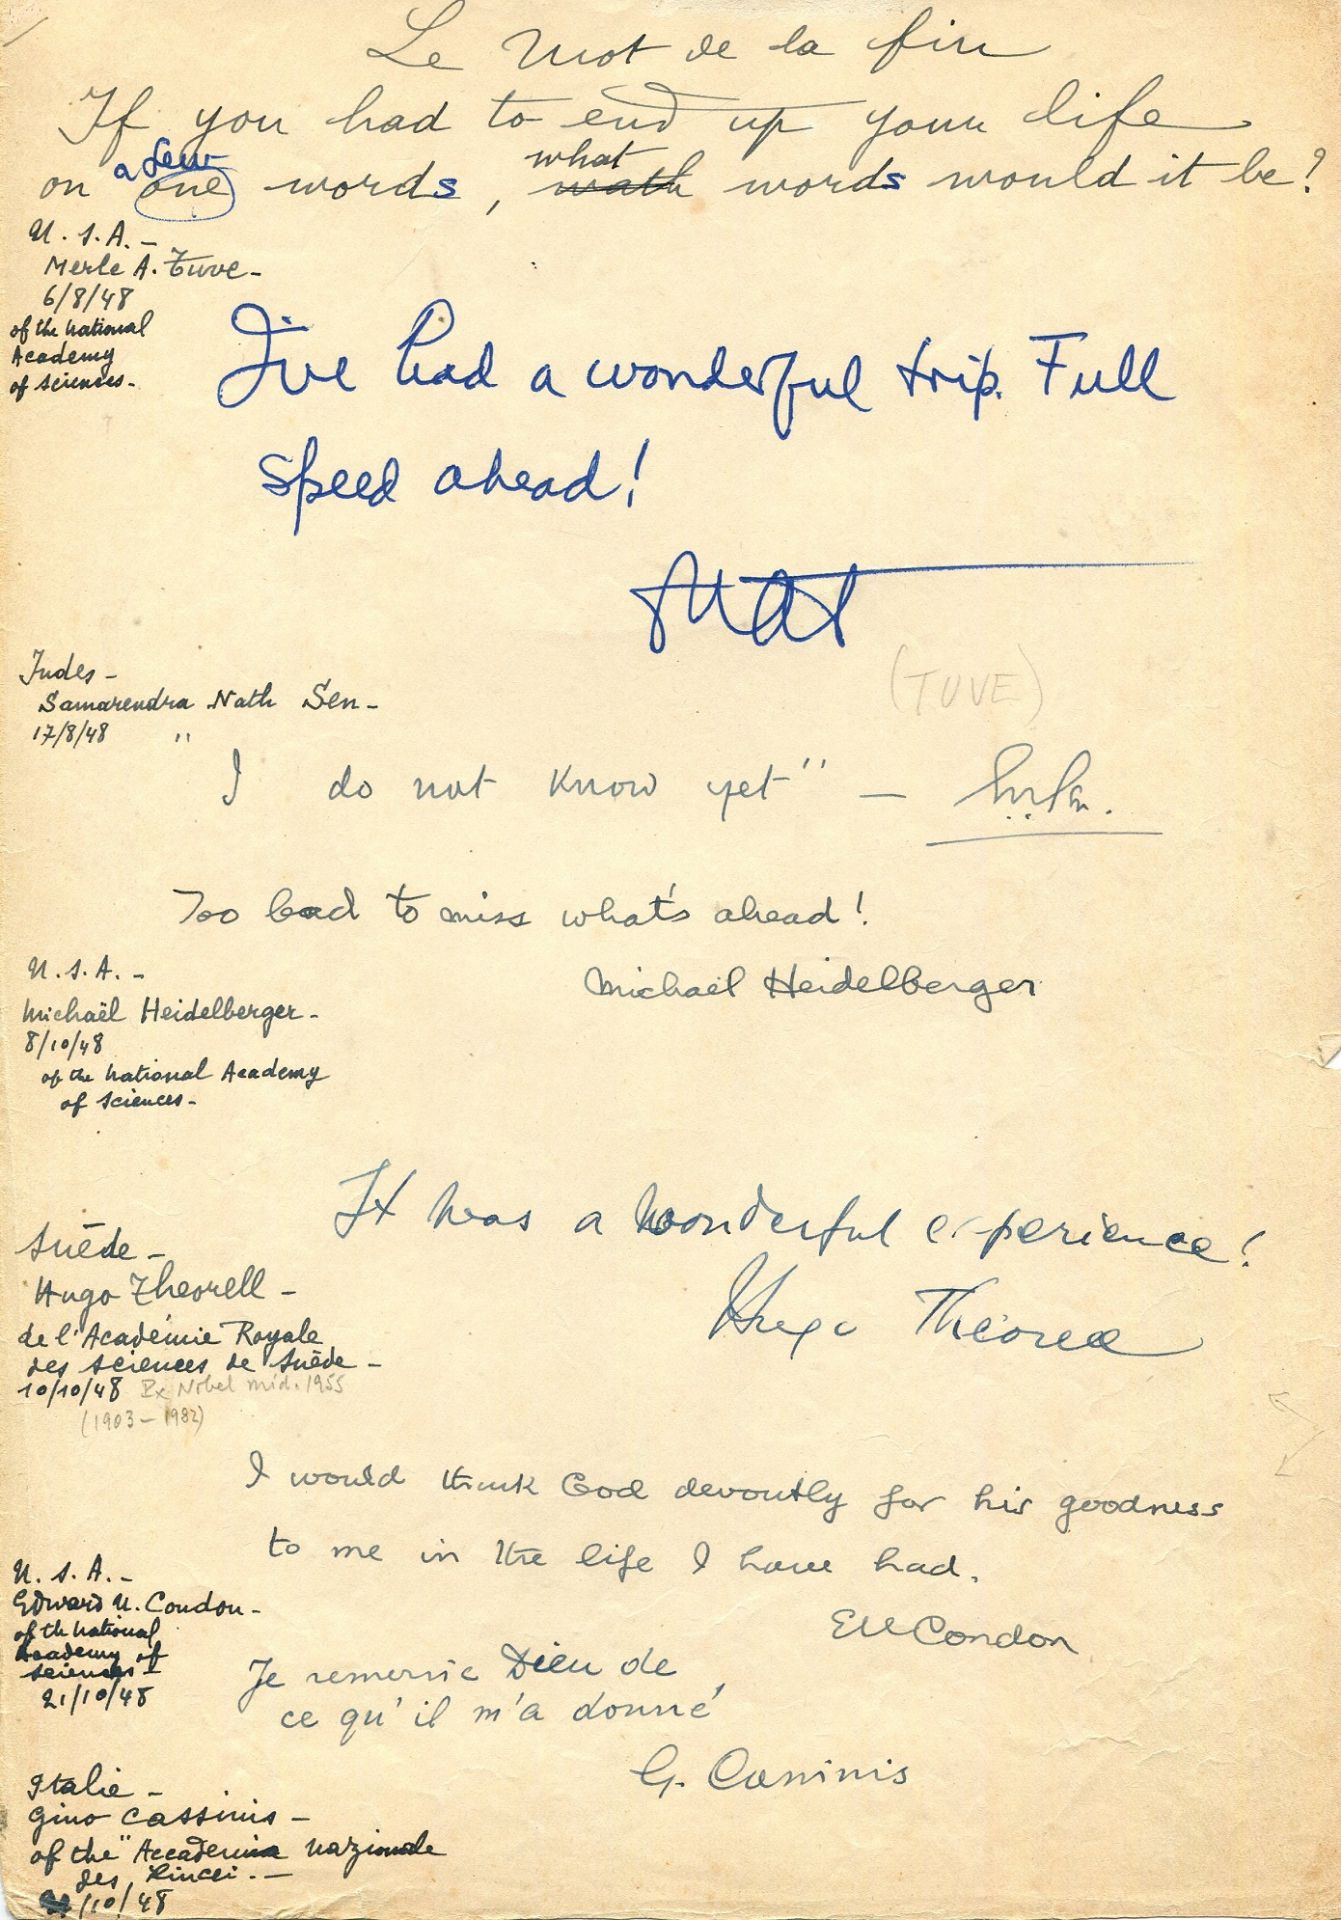 Le mot de la fin
If you had to end up your life
a few
what
on one words, wath words would it be?
U.S.A. -
Merle A. Tuve -
6/8/48
of the National
Academy
of Sciences -
I've had a wonderful trip. Full
speed ahead!
MAT
(TUVE)
Indes -
Samarendra Nath Sen -
17/8/48 "
I do not know yet" -
Too bad to miss what's ahead!
Michael Heidelberger
U.S.A. -
Michaël Heidelberger -
8/10/48
of the National Academy
of Sciences -
It was a wonderful experience!
Hugo Theorell
Suède -
Hugo Theorell -
de l'Académie Royale
des Sciences de Suède -
10/10/48 Px Nobel méd. 1955
(1903 - 1982)
I would think God devoutly for his goodness
to me in the life I have had.
EU Condon
U.S.A. -
Edward U. Condon -
of th National
Academy of
Sciences -
21/10/48
Je remercie Dieu de
ce qu'il m'a donné
G. Cassinis
Italie -
Gino Cassinis -
of the "Accademia Nazionale
des Lincei. -
/10/48